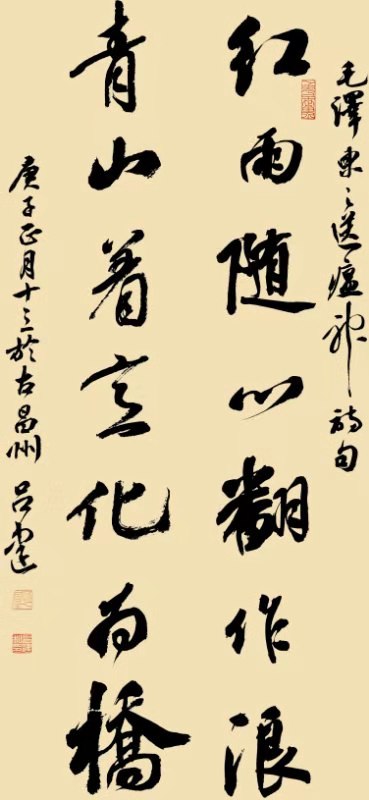 毛澤東之送瘟神詩句
红雨随心翻作浪
青山着意化为橋
庚子正月十三於古昌州 吕